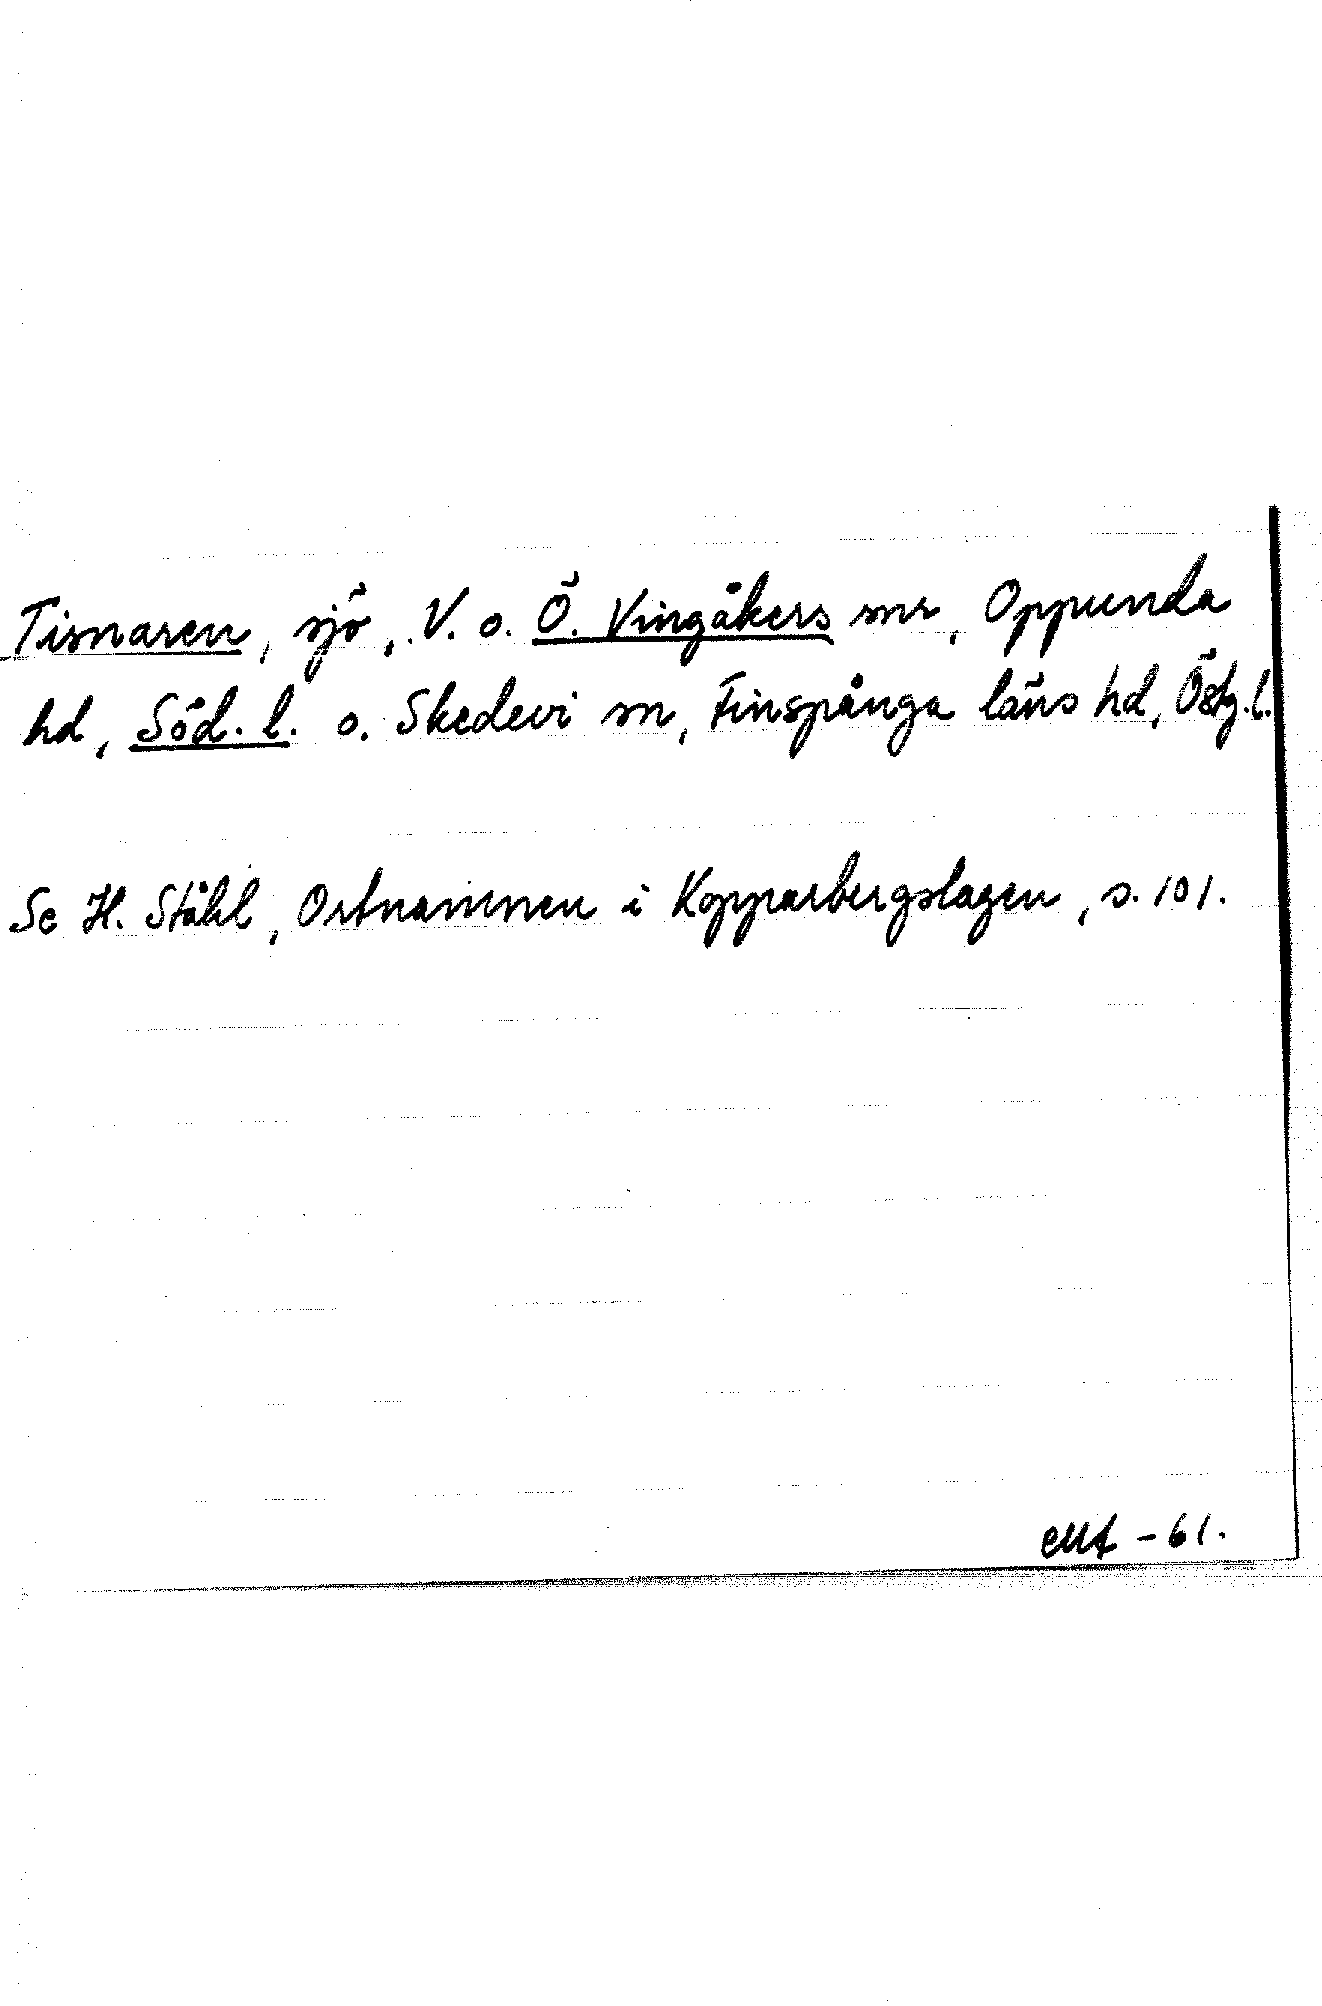 Tisnaren, sjö, V. o. Ö. Vingåkers snr, Oppunda
hd, Söd. l. o. Skedevi sn, Finspånga läns hd, Östg. l.
Se H. Ståhl, Ortnamnen i Kopparbergslagen, s. 101.
-61.